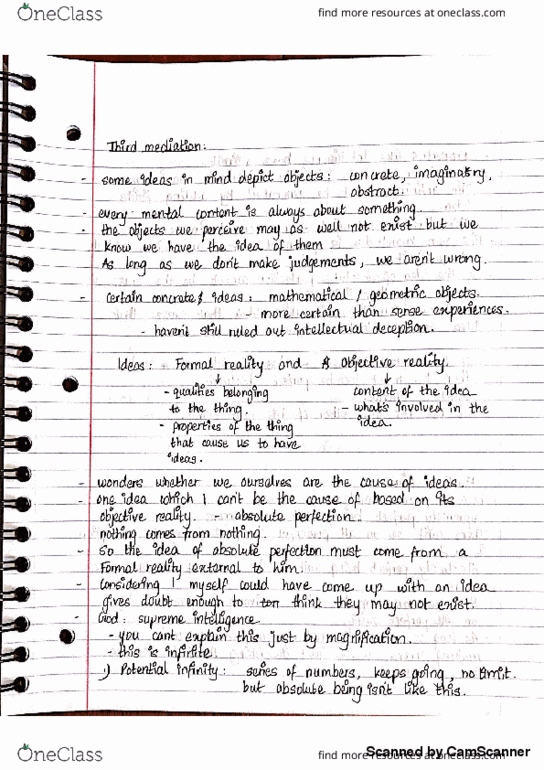 OneClass
find more resources at oneclass.com
Third mediation:
- some ideas in mind depict objects: concrete, imaginatry,
abstract.
every mental content is always about something.
- the objects we perceive may as well not exist but we
know we have the idea of them
As long as we don't make judgements, we aren't wrong.
- certain concrete ideas: mathematical / geometric objects.
- more certain than sense experiences.
- haven't still ruled out intellectual deception.
Ideas: Formal reality and objective reality.
- qualities belonging content of the idea
to the thing. - what's involved in the
- properties of the thing idea.
that cause us to have
ideas.
- wonders whether we ourselves are the cause of ideas.
- one idea which I can't be the cause of based on its
objective reality. - absolute perfection.
nothing comes from nothing.
- So the idea of absolute perfection must come from a
Formal reality external to him.
- considering I myself could have come up with an idea
gives doubt enough to think they may not exist.
- God: supreme intelligence
- you cant explain this just by magnification.
- this is infinite
) Potential infinity: series of numbers, keeps going, no limit.
but absolute being isn't like this.
OneClass
find more resources at oneclass.com
Scanned by CamScanner